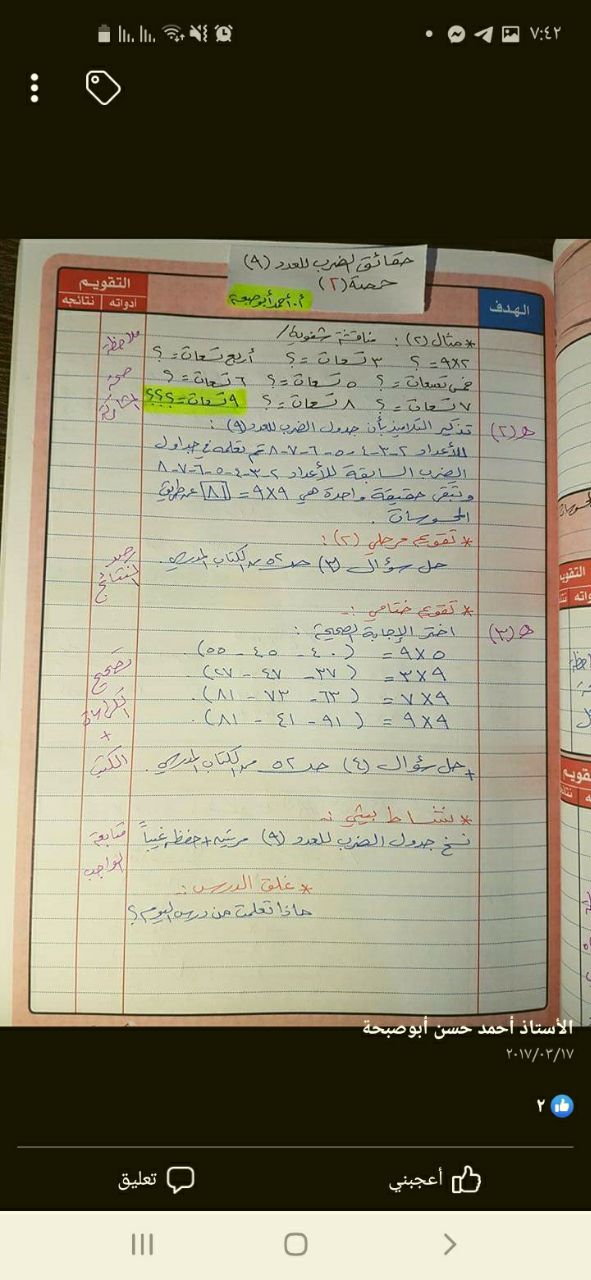 ٧:٤٢
حقائق الضرب للعدد (٩)
حصة (٢)
أ. أحمد أبو صبحة
الهدف
التقويم
أدواته
نتائجه
* مثال (٢): مناقشة شفوية /
٩×٢ = ؟ ٣ تسعات = ؟ أربع تسعات = ؟
خمس تسعات = ؟ ٥ تسعات = ؟ ٦ تسعات = ؟
٧ تسعات = ؟ ٨ تسعات = ؟ ٩ تسعات = ؟؟؟
ملاحظة
صحة
هـ (٢)
تذكير التلاميذ بأن جدول الضرب للعدد (٩):
للأعداد ٢-٣-٤-٥-٦-٧-٨ تم تعلمه في جداول
الضرب السابقة للأعداد ٢-٣-٤-٥-٦-٧-٨
وتبقى حقيقة واحدة هي ٩×٩ = ٨١ عن طريق
المحسوسات.
* تقويم مرحلي (٢):
حل سؤال (٣) صـ ٥٢ من الكتاب المدرسي.
رصد
النتائج
* تقويم ختامي :-
هـ (٣)
اختر الإجابة الصحيحة:
٥×٩ = (٤٠ - ٤٥ - ٥٥).
٩×٣ = (٣٧ - ٤٧ - ٢٧).
٩×٧ = (٦٣ - ٧٢ - ٨١).
٩×٩ = (٩١ - ٤١ - ٨١).
تصحيح
الكراسة
+
الكتب
+ حل سؤال (٤) صـ ٥٢ من الكتاب المدرسي.
* نشاط بيتي :-
نسخ جدول الضرب للعدد (٩) مرتين + حفظه غيباً
متابعة
الواجب
* غلق الدرس :-
ماذا تعلمت من درس اليوم؟
التقويم
التقويم
الأستاذ أحمد حسن أبوصبحة
٢٠١٧/٠٣/١٧
٢
أعجبني
تعليق